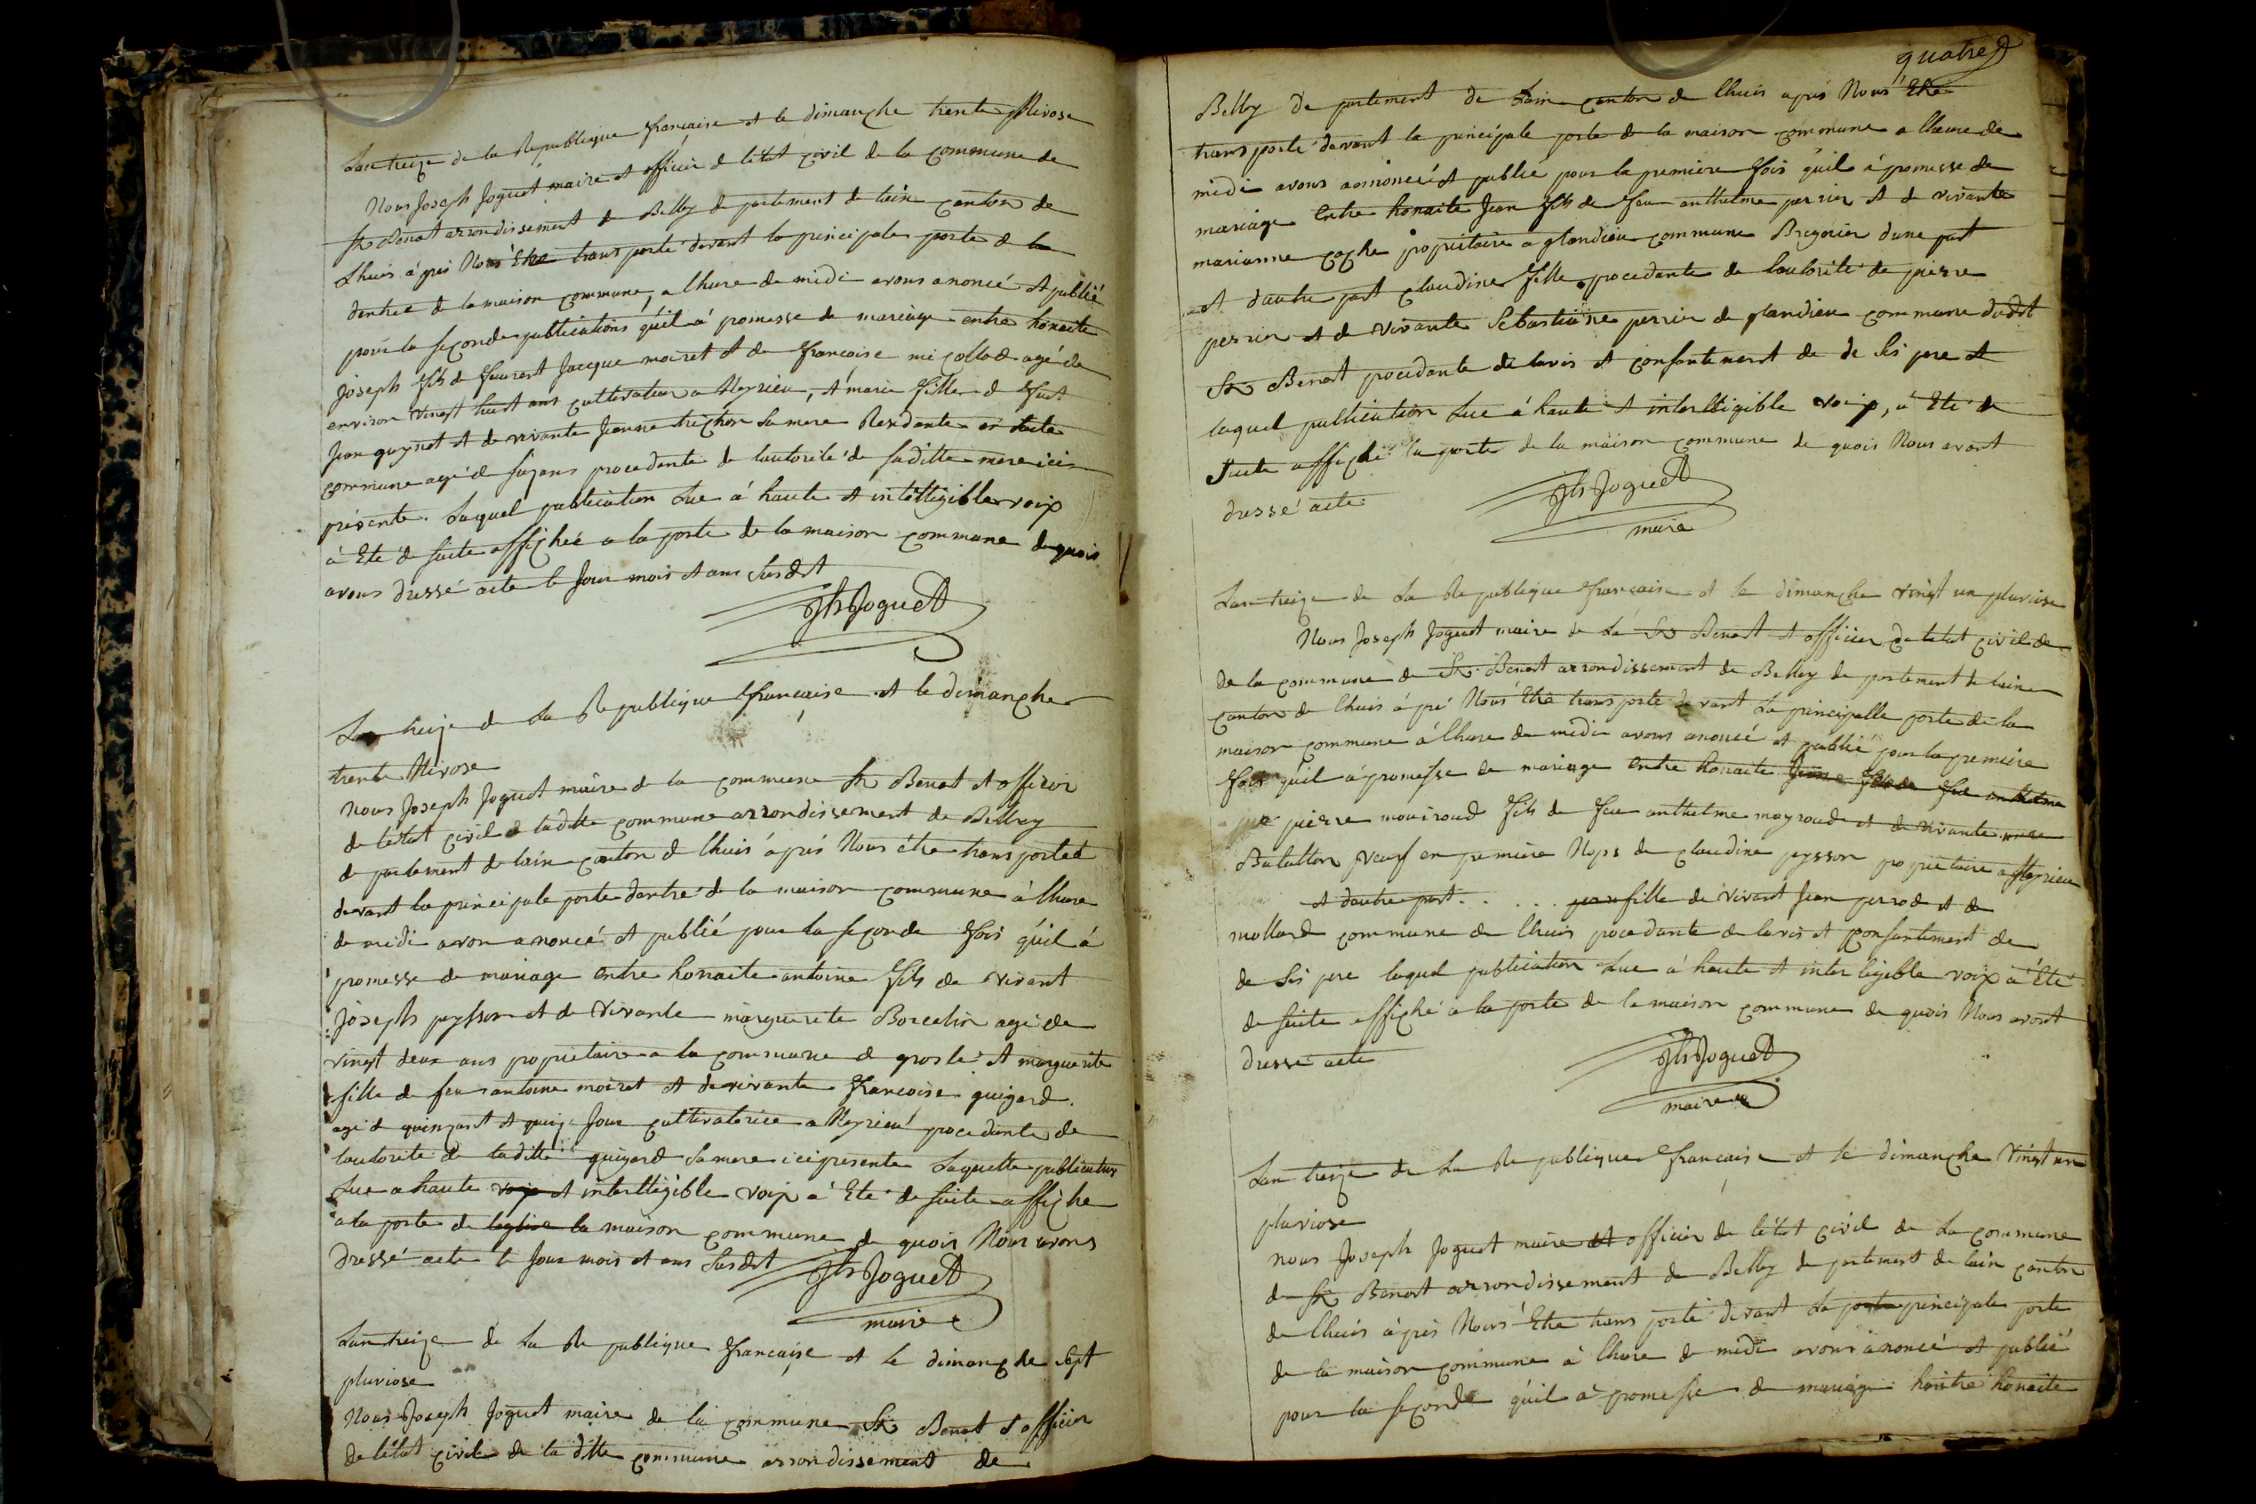 Lan treize de la Republique francaise et le dimanche trente Nivose
Nous Joseph Joguet maire et officier de létat civil de la commune de
St Benoit arrondissement de Belley de partement de lain canton de
Lhuis á prés Nous Etre transporté devant la principale porte de la
dentrée de la maison commune, a lhure de midi avons anoncé et publié
pour la seconde publications quil a promesse de mariage entre honaite
Joseph fils de feurent Jacque moiret et de francoise micollod agé de
environ vinst huit ans cultivateur a Meyrieu, et marie fille de feut
Jean guynet et de vivante Jeanne trichon sa mere Residente
commune agé de procedante de lautorité de saditte mere ici
présente. Laquel publication Lue á haute et intelligible voix
à Eté de suite affichée a la porte de la maison commune de quois
avons dressé acte le Jour mois et ans susdit
Jh Joguet
Lan treize de La Republique francaise et le dimanche
trente Nivose
Nous Joseph Joguet maire de la commune St Benoit et officier
de létat civil de laditte commune arrondissement de Belley
de partement de lain canton de lhuis á prés Nous étre transporté
devant la principale porte dantré de la maison commune á lhure
de midi avon anoncé et publié pour la seconde fois quil á
promesse de mariage entre honaite antoine fils de vivant
Joseph peysson et de vivante marguerite Borcelin agé de
vinst deux ans propriétaire a la commune de groslé et marguerite
fille de feu antoine moiret et de vivante francoise guigard
agé de et quinze Jour cultivatrice a Meyrieu procedante de
lautorité de laditte guigard sa mere ici presente Laquelle publication
Lue a haute voix et intelligible voix a Eté de suite affiche
a la porte de léglise la maison commune de quois Nous avons
dressé acte le Jour mois et ans susdit
Jh Joguet
maire
Lan treize de La Republique francaise et le dimanche sept
pluviose
Nous Joseph Joguet maire de la commune St Benoit et officier
de létat civil de la ditte commune arrondissement de
quatre
Belley de partement de Lain canton de lhuis aprés Nous Etre
transporté devant la principale porte de la maison commune a lheure de
midi avons annoncé et publié pour la premiere fois quil á promesse de
mariage Entre honaite Jean fils de feu anthelme perrier et de vivante
marianne coche propriétaire a glandieu commune Bregnier dune part
et dautre part claudine fille procedante de lautorité de pierre
perrier et de vivante Sebastiane perrier de glandieu commune dudit
St Benoit procedante de lavis et consantement de de Ses pere et
laquel publication Lue á haute et intelligible voix, à Eté de
suite affiché la porte de la maison commune de quois Nous avont
dressé acte
Jh Joguet
maire
Lan treize de La Republique francaise et le dimanche vinst un pluviose
Nous Joseph Joguet maire de La St Benoit et officier de létat civil de
de la commune de St Benoit arrondissement de Belley de partement de lain
canton de lhuis á pré Nous Etre transporté devant La principalle porte de la
maison commune á lhure de midi avons anoncé et publié pour la premiere
fois quil á promesse de mariage entre honaite
pierre moiroud fils de feu anthelme moyroud et de vivante
Batallion veuf en premiere Nops de claudine peysson propriétaire a Meyrieu
et dautre part . . . . . fille de vivant Jean perrod et de
mollard commune de lhuis procedante de lavis et consantement de
de Ses pere laquel publication Lue á haute et inteligible voix à Eté
de suite affiché a la porte de la maison commune de quois Nous avont
dressé acte
Jh Joguet
maire
Lan treize de La Republique francaise et le dimanche Vinst un
pluviose
nous Joseph Joguet maire et officier de létat civil de La commune
de St Benoit arrondissement de Belley de partement de lain canton
de lhuis á prés Nous Etre transporté devant La porte principale porte
de la maison commune à lhure de midi avons anoncé et publié
pour la seconde quil a promesse de mariage hontre honaite